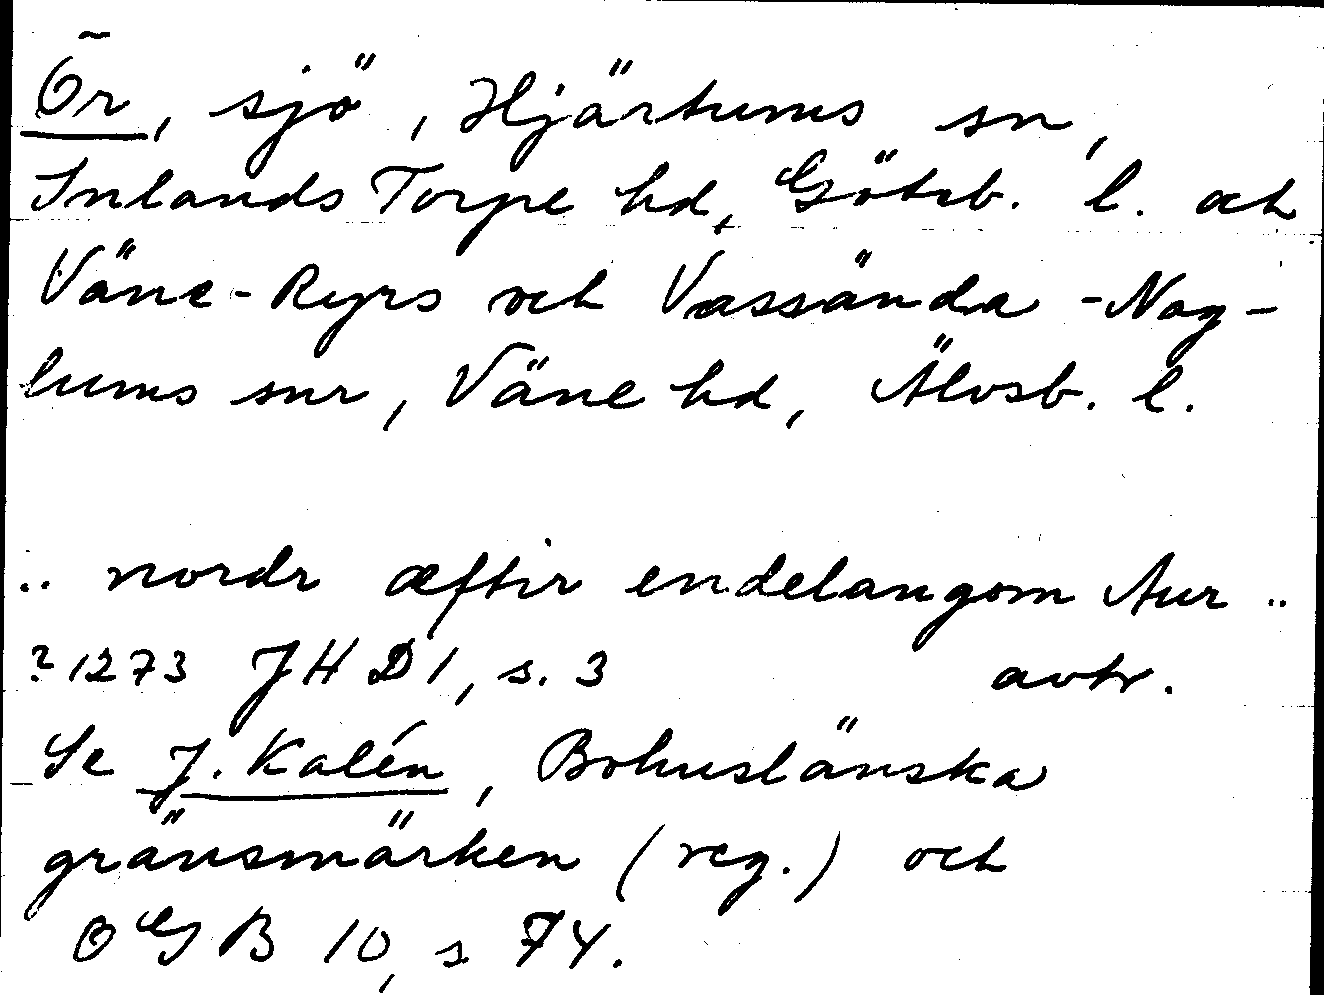 Ör, sjö, Hjärtums sn,
Inlands Torpe hd, Göteb. l. och
Väne-Ryrs och Vassända-Nag-
lums snr, Väne hd, Älvsb. l.
.. nordr æftir endelangom Aur ..
? 1273 JHD 1, s. 3 avtr.
Se J. Kalén, Bohuslänska
gränsmärken (reg.) och
OGB 10, s 74.